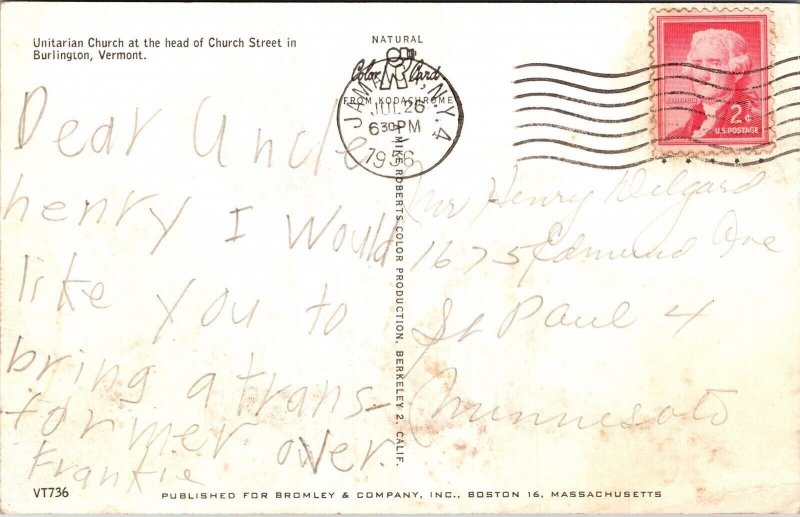 Unitarian Church at the head of Church Street in
Burlington, Vermont.
Dear Uncle
henry I Would
like you to
bring a trans-
former over.
Frankie
VT736
NATURAL
Color Card
FROM KODACHROME
JAMAICA, N.Y. 4
JUL 26
630PM
1956
MIKE ROBERTS COLOR PRODUCTION, BERKELEY 2, CALIF.
2¢
U.S. POSTAGE
Mr Henry Delgard
1675 Edmund Ave
St Paul 4
Minnesota
PUBLISHED FOR BROMLEY & COMPANY, INC., BOSTON 16, MASSACHUSETTS